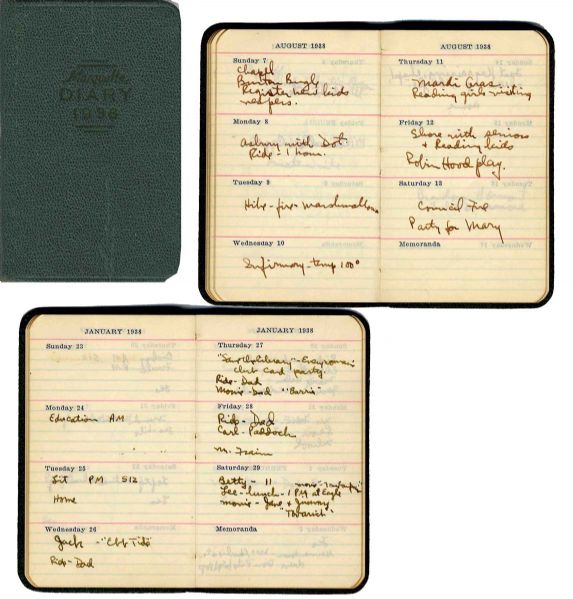 DIARY
1938
AUGUST 1938
Sunday 7
Chapel
Register new kids
Monday 8
Asbury with Dot
Ride - 1 hour.
Tuesday 9
Hike - fire - marshmallows
Wednesday 10
Infirmary - temp 100°
AUGUST 1938
Thursday 11
Mardi Gras.
Reading girls visiting
Friday 12
Shore with seniors
+ Reading kids
Robin Hood play.
Saturday 13
Council Fire
Party for Mary
Memoranda
JANUARY 1938
Sunday 23
Monday 24
Education AM
Tuesday 25
Lit PM S12
Home
Wednesday 26
Jack - "Ebb Tide"
Ride - Dad
JANUARY 1938
Thursday 27
club card party.
Ride - Dad
Movie - Dad
Friday 28
Ride - Dad
Carl - Paddock
Saturday 29
Betty - 11
Lee - lunch - 1 PM at Eagle
movie - Jane + Jimmy
"Tovarich"
Memoranda